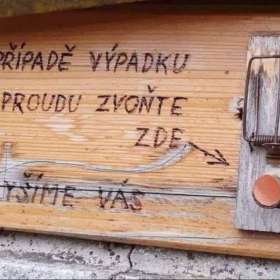 PŘÍPADĚ VÝPADKU
PROUDU ZVOŇTE
ZDE
YŠÍME VÁS